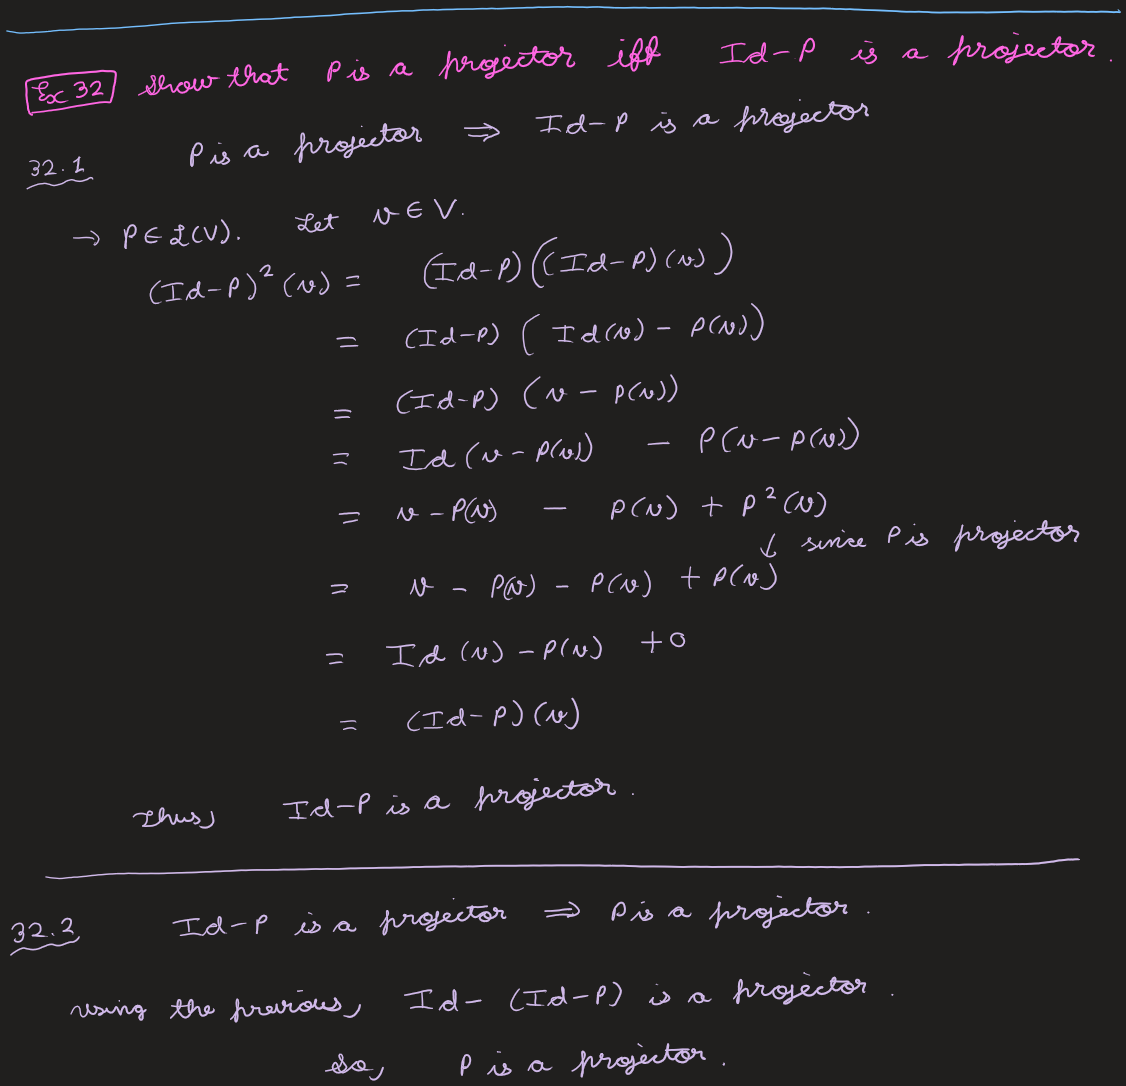 Ex 32 Show that P is a projector iff Id-P is a projector.
32.1 P is a projector ⇒ Id-P is a projector
→ P ∈ ℒ(V). Let v ∈ V.
(Id-P)²(v) = (Id-P)((Id-P)(v))
= (Id-P)(Id(v) - P(v))
= (Id-P)(v - P(v))
= Id(v - P(v)) - P(v - P(v))
= v - P(v) - P(v) + P²(v)
↓ since P is projector
= v - P(v) - P(v) + P(v)
= Id(v) - P(v) + 0
= (Id-P)(v)
Thus, Id-P is a projector.
32.2 Id-P is a projector ⇒ P is a projector.
using the previous, Id-(Id-P) is a projector.
So, P is a projector.